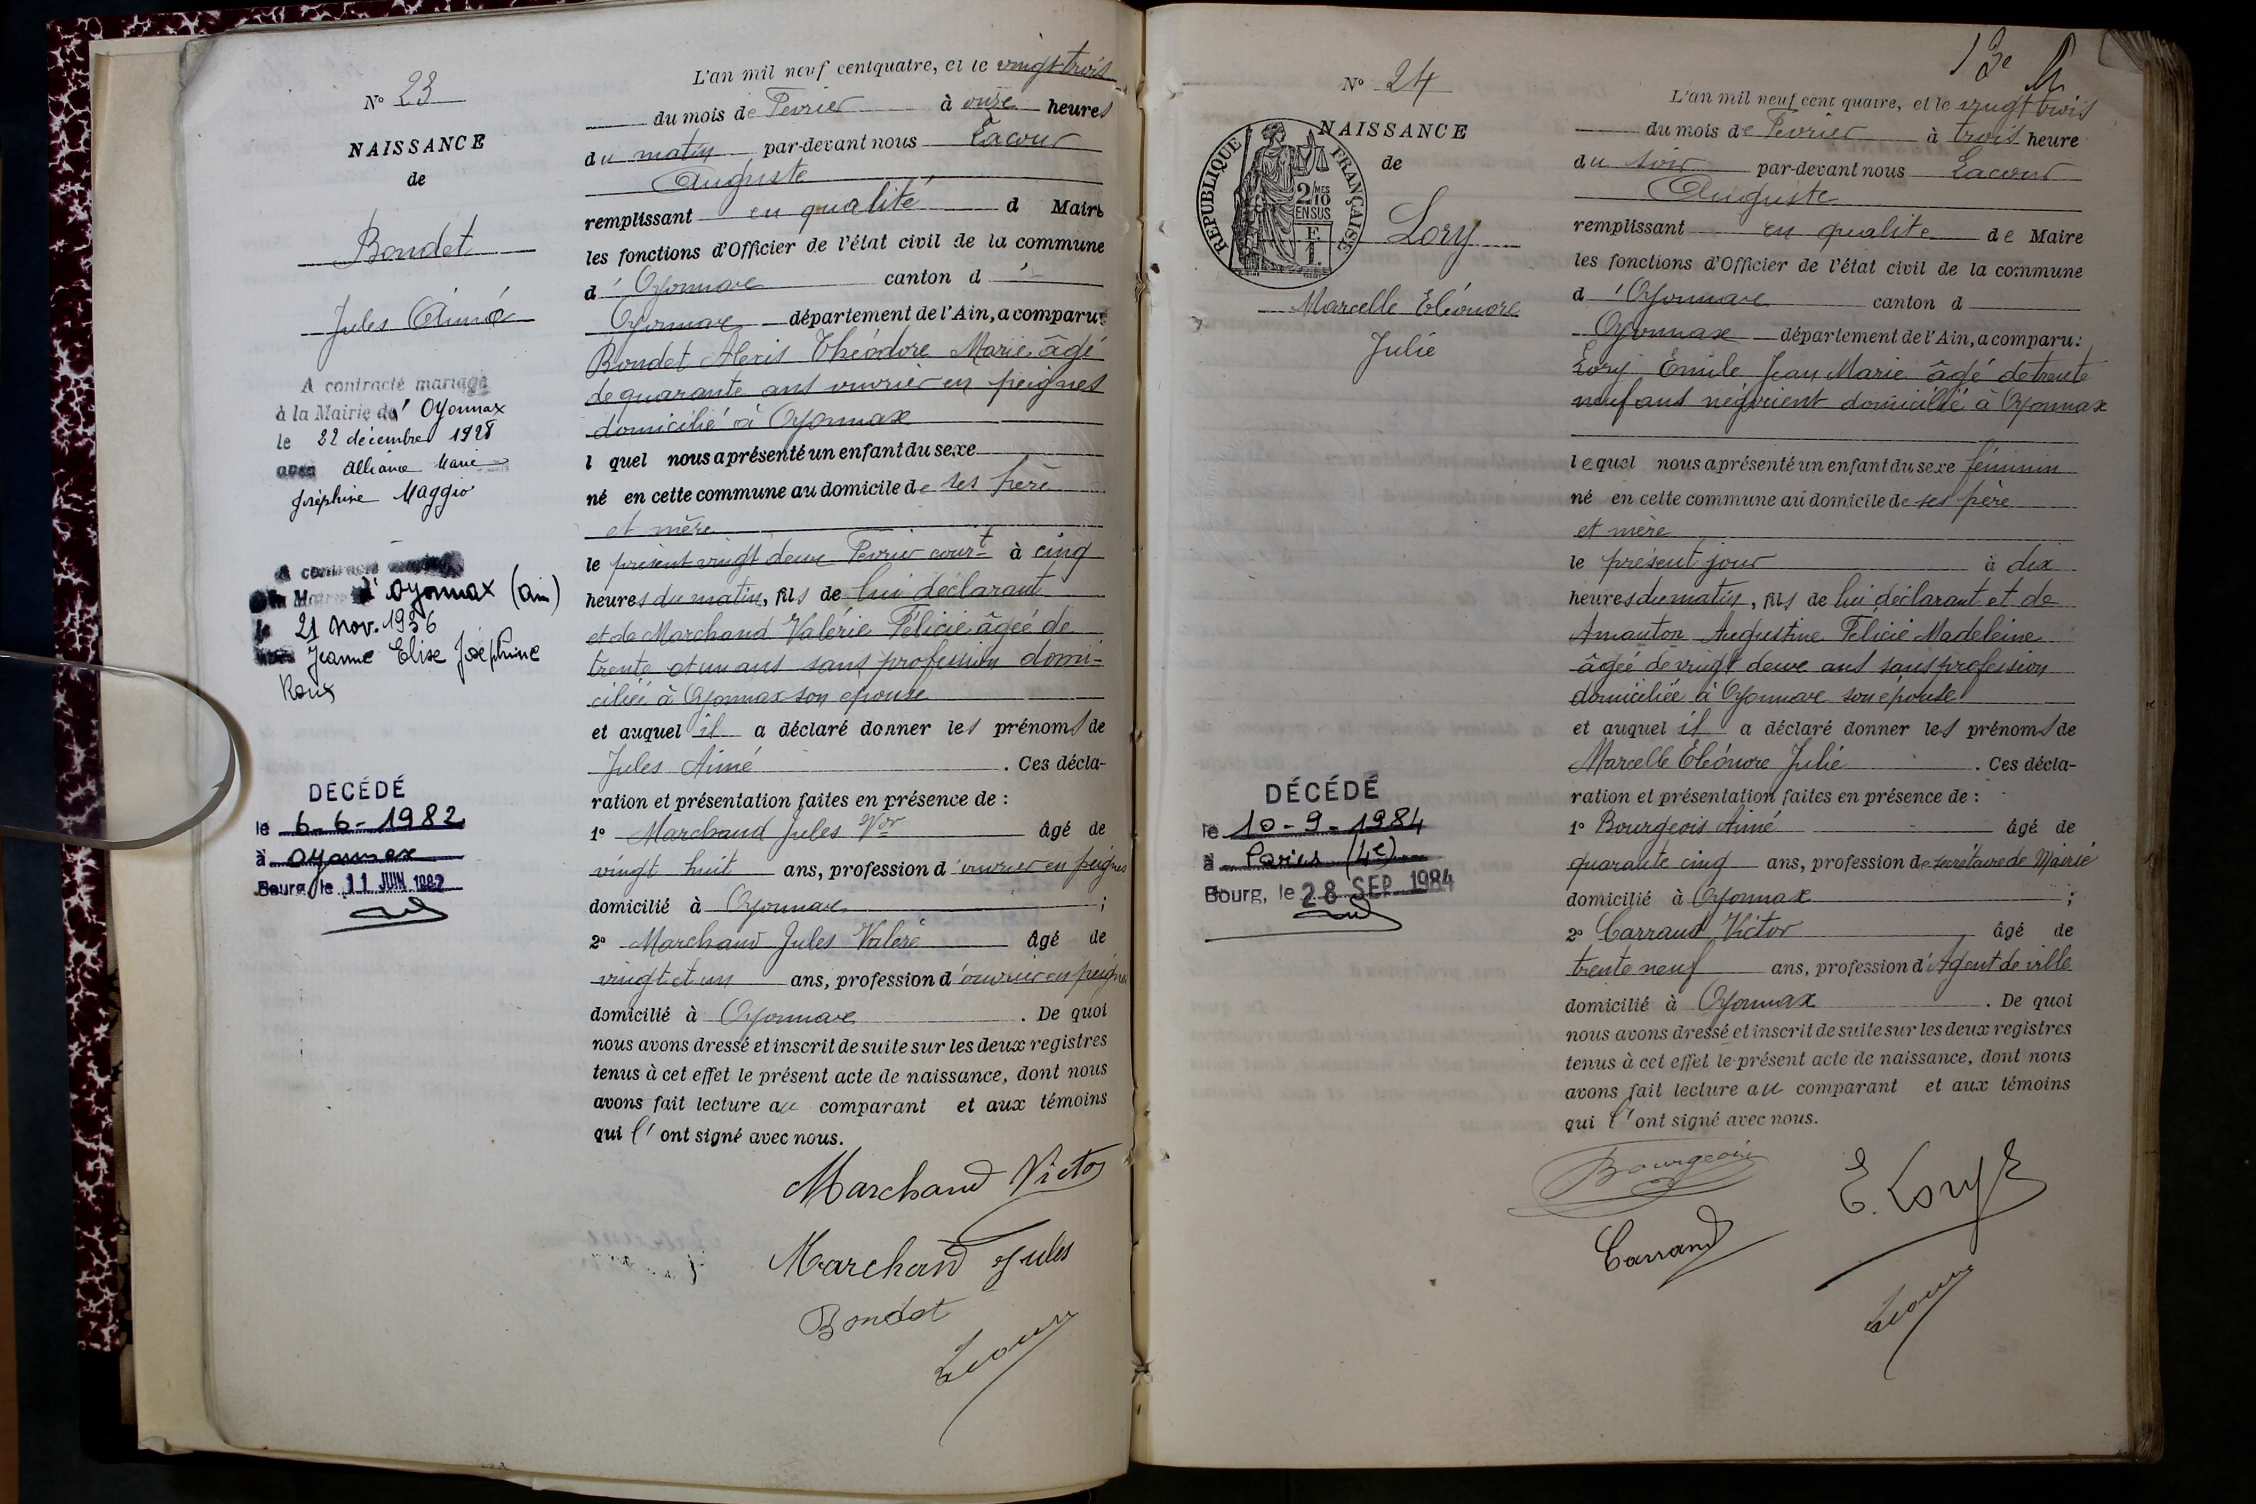 N° 23
NAISSANCE
de
Bondet
Jules Aimé
A contracté mariage
à la Mairie d' Oyonnax
le 22 décembre 1928
avec Alliaine Marie
Joséphine Maggio
A contracté
la Mairie d' Oyonnax (Ain)
le 21 Nov. 1936
Jeanne Elise Joséphine
Roux
DÉCÉDÉ
le 6-6-1982
à Oyonnax
Bourg, le 11 JUIN 1982
L'an mil neuf cent quatre, et le vingt trois
du mois de Fevrier à onze heures
du matin par-devant nous Lacour
Auguste
remplissant en qualité d Maire
les fonctions d'Officier de l'état civil de la commune
d' Oyonnax canton d'
Oyonnax département de l'Ain, a comparu:
Bondet Alexis Théodore Marie âgé
de quarante ans ouvrier en peignes
domicilié à Oyonnax
l quel nous a présenté un enfant du sexe
né en cette commune au domicile de ses père
et mère
le présent vingt deux Fevrier cour-t à cinq
heures du matin, fils de lui déclarant
et de Marchand Valérie Félicie âgée de
trente et un ans sans profession domi-
ciliée à Oyonnax son épouse
et auquel il a déclaré donner les prénoms de
Jules Aimé . Ces décla-
ration et présentation faites en présence de :
1° Marchand Jules Vor âgé de
vingt huit ans, profession d'ouvrier en peignes
domicilié à Oyonnax ;
2° Marchand Jules Valéré âgé de
vingt et un ans, profession d'ouvrier en peignes
domicilié à Oyonnax . De quoi
nous avons dressé et inscrit de suite sur les deux registres
tenus à cet effet le présent acte de naissance, dont nous
avons fait lecture au comparant et aux témoins
qui l'ont signé avec nous.
Marchand Victor
Marchand Jules
Bondet
Lacour
13e
N° 24
NAISSANCE
de
RÉPUBLIQUE FRANÇAISE
2/10 MES
EN SUS
Lory
Marcelle Eléonore
Julie
DÉCÉDÉ
le 10-9-1984
à Paris (4e)
Bourg, le 28 SEP. 1984
L'an mil neuf cent quatre, et le vingt trois
du mois de Fevrier à trois heure
du soir par-devant nous Lacour
Auguste
remplissant en qualite de Maire
les fonctions d'Officier de l'état civil de la commune
d'Oyonnax canton d
Oyonnax département de l'Ain, a comparu:
Lory Emile Jean Marie âgé de trente
neuf ans négocient domicilié à Oyonnax
lequel nous a présenté un enfant du sexe féminin
né en cette commune au domicile de ses père
et mère
le présent jour à dix
heures du matin, fils de lui déclarant et de
Amanton Augustine Félicie Madeleine
âgée de vingt deux ans sans profession
domiciliée à Oyonnax son épouse
et auquel il a déclaré donner les prénoms de
Marcelle Eléonore Julie . Ces décla-
ration et présentation faites en présence de :
1° Bourgeois Aimé âgé de
quarante cinq ans, profession de secrétaire de Mairie
domicilié à Oyonnax ;
2° Carraud Victor âgé de
trente neuf ans, profession d'Agent de ville
domicilié à Oyonnax . De quoi
nous avons dressé et inscrit de suite sur les deux registres
tenus à cet effet le présent acte de naissance, dont nous
avons fait lecture au comparant et aux témoins
qui l'ont signé avec nous.
Bourgeois
E. Lory
Carraud
Lacour